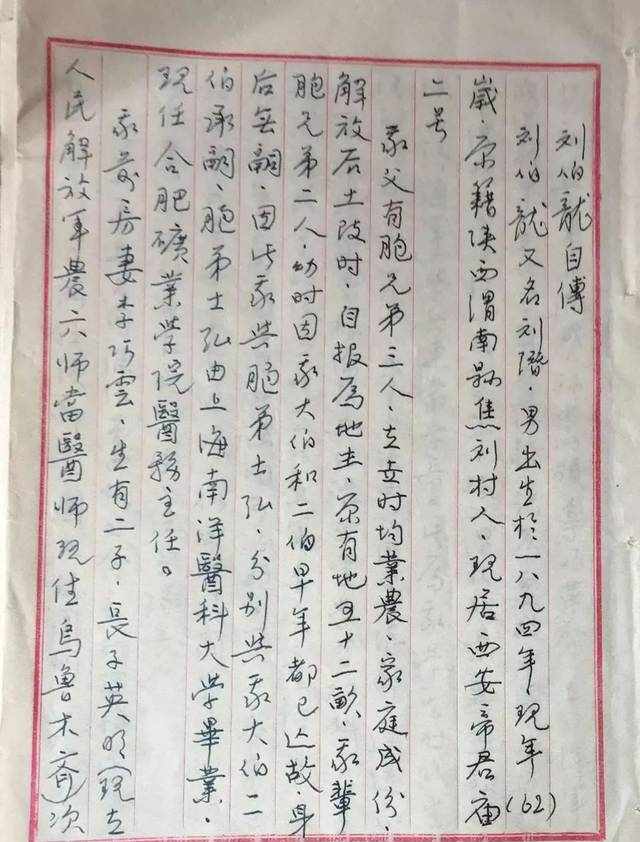 刘伯龍自傳
刘伯龍又名刘潛．男出生於一八九四年．現年(62)
歲．原籍陕西渭南縣焦刘村人．現居西安帝君庙
二号
我父有胞兄弟三人．在世时均業農．家庭成份．
解放后土改时．自报為地主．原有地五十二畝．我輩
胞兄弟二人．幼时因我大伯和二伯早年都已亡故身
后無嗣．因此我與胞弟士弘．分别與我大伯二
伯承嗣．胞弟士弘由上海南洋醫科大学畢業．
現任合肥礦業学院醫務主任。
我前房妻李巧雲．生有二子．長子英明(現在
人民解放軍農六师當醫师現住烏鲁木齊)次